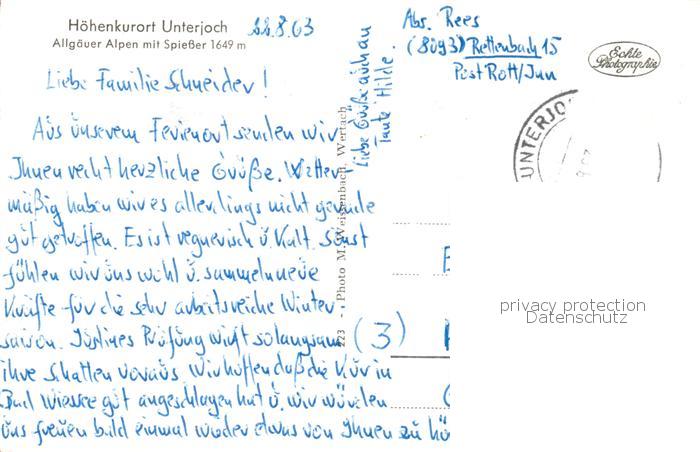 Höhenkurort Unterjoch
Allgäuer Alpen mit Spießer 1649 m
22.8.63
Liebe Familie Schneider!
Aus unserem Ferienort senden wir
Ihnen recht herzliche Grüße. Wetter-
mäßig haben wir es allerdings nicht gerade
gut getroffen. Es ist regnerisch u. kalt. Sonst
fühlen wir uns wohl u. sammeln neue
Kräfte für die sehr arbeitsreiche Winter-
saison. Justines Prüfung wirft so langsam
ihre Schatten voraus. Wir hoffen daß die Kur in
Bad Wiessee gut angeschlagen hat u. wir würden
uns freuen bald einmal wieder etwas von Ihnen zu hö
Liebe Grüße auch an
Tante Hilde.
223 - Photo M. Weissenbach, Wertach
Abs. Rees
(8093) Rettenbach 15
Post Rott/Inn
Echte
Photographie
UNTERJO
(3)
privacy protection
Datenschutz